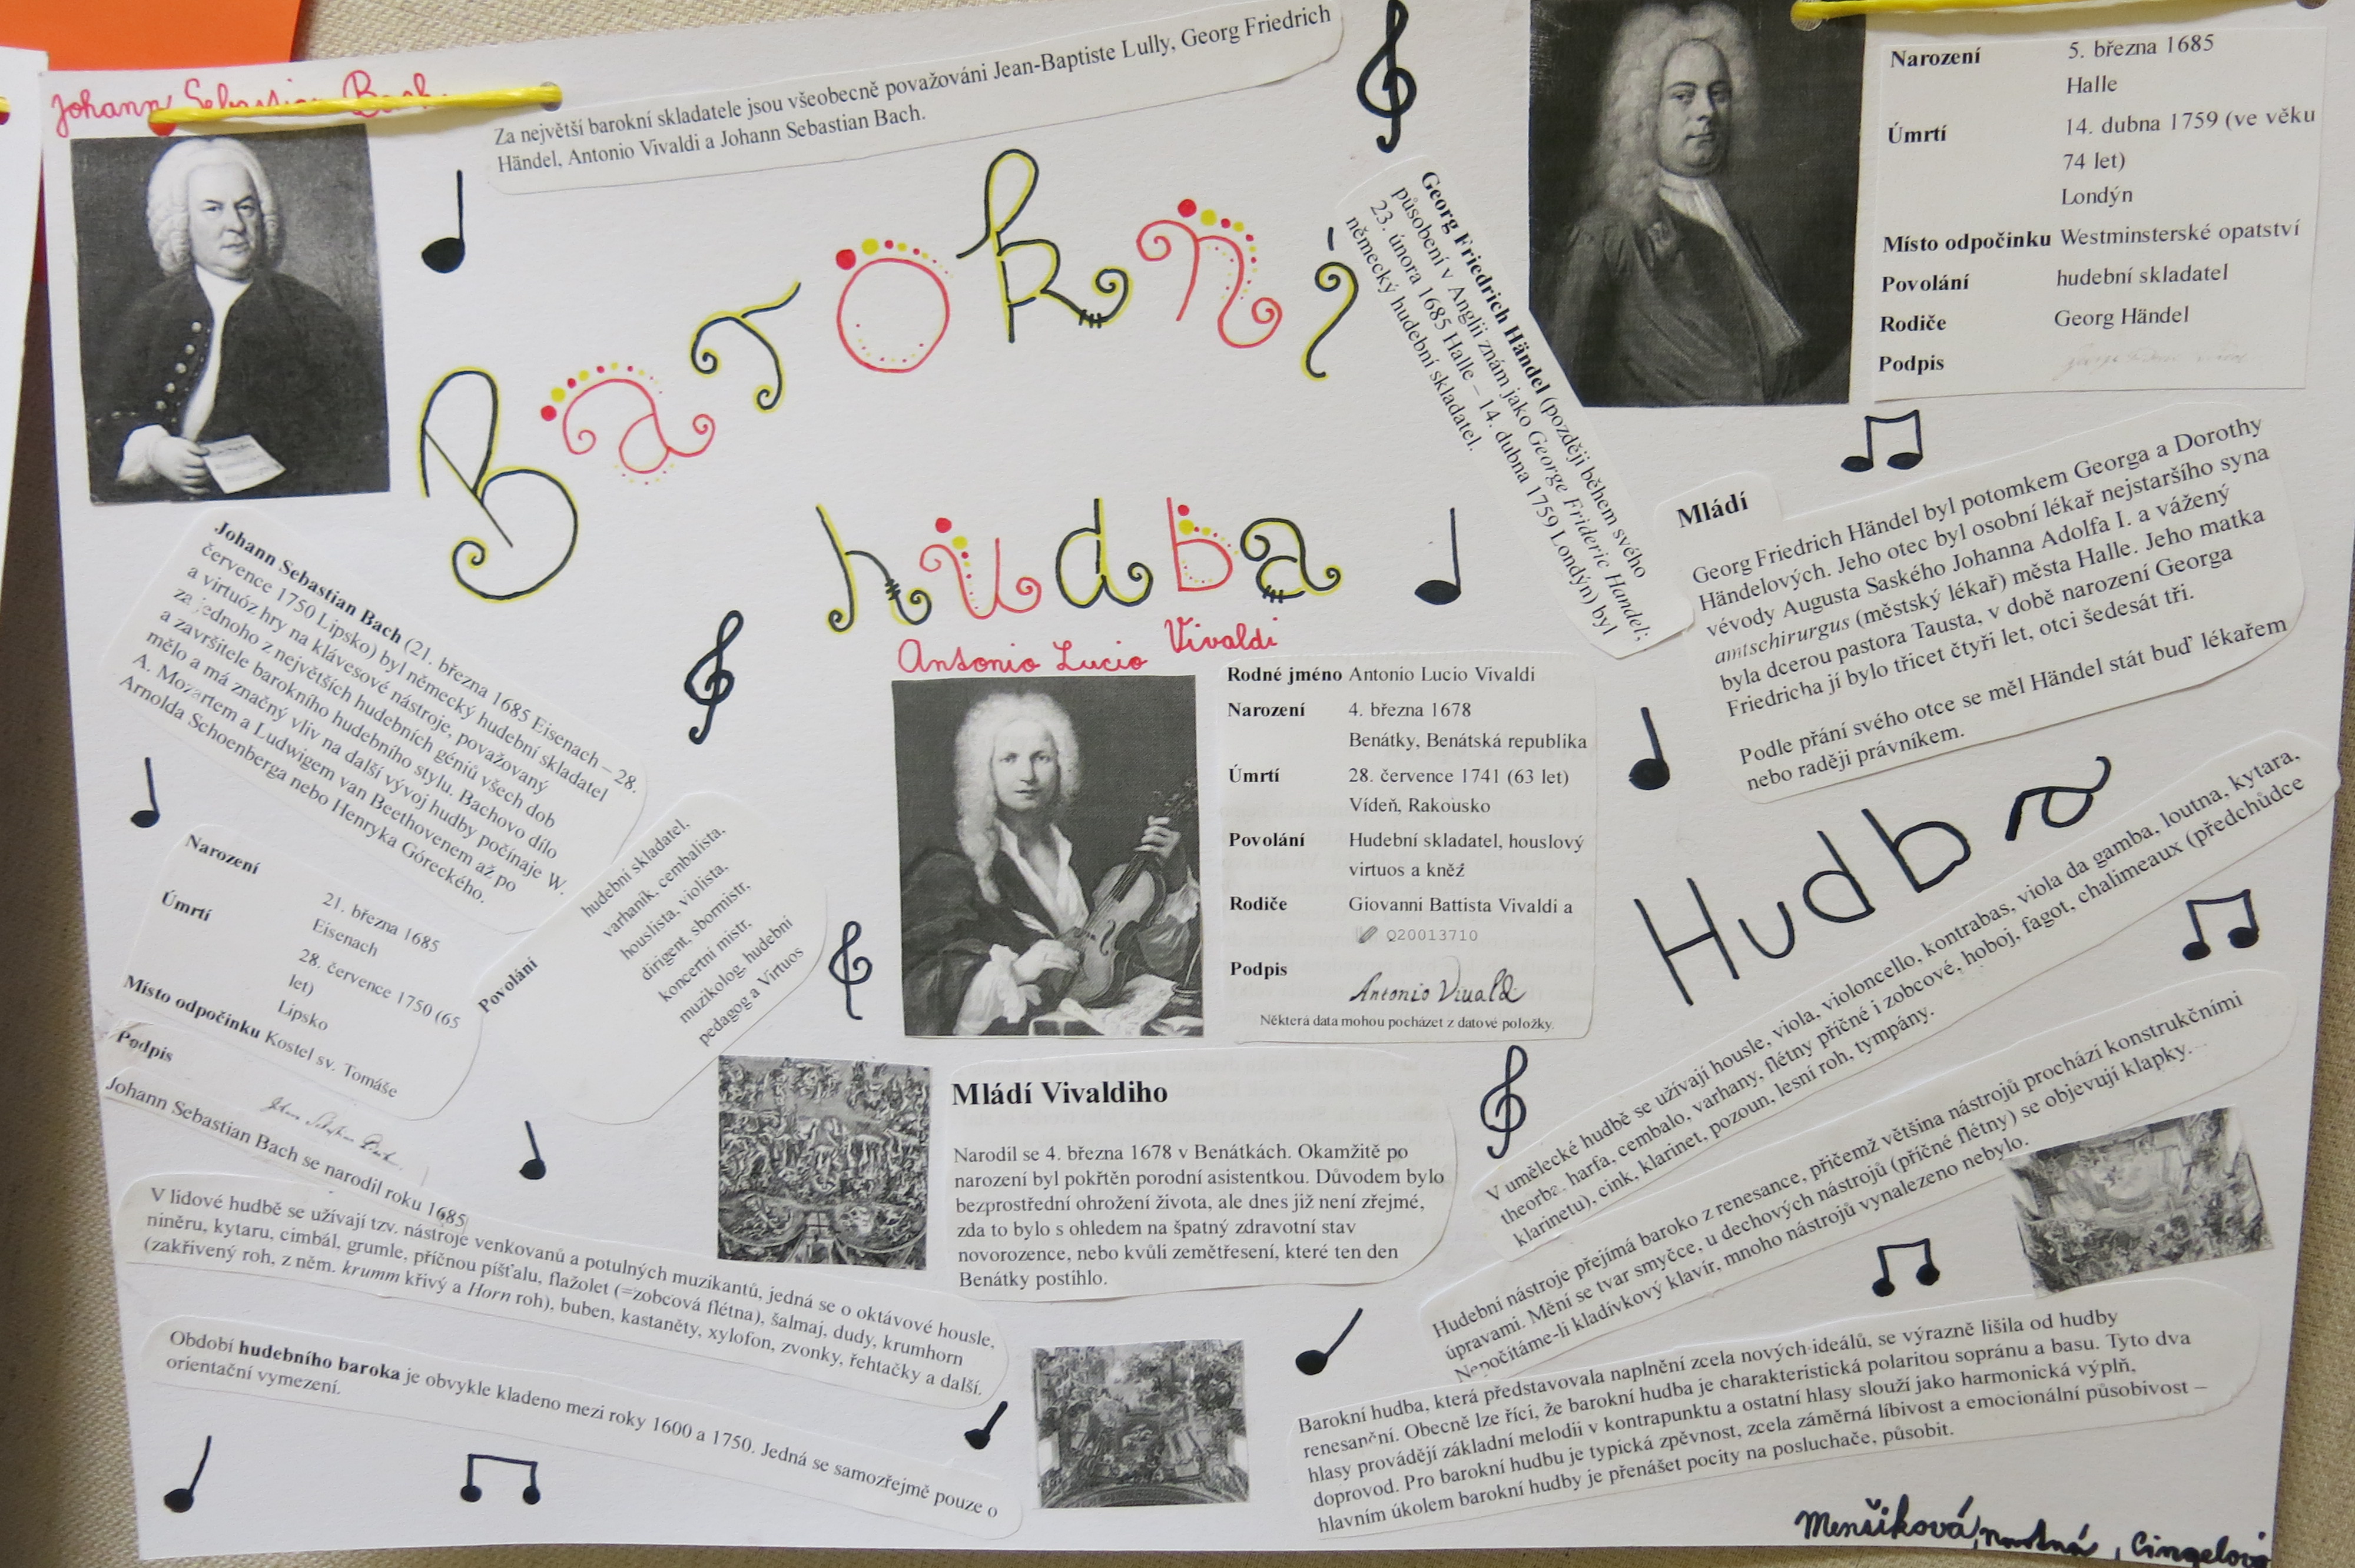 Johann Sebastian Bach
Za největší barokní skladatele jsou všeobecně považováni Jean-Baptiste Lully, Georg Friedrich
Händel, Antonio Vivaldi a Johann Sebastian Bach.
Barokní
hudba
Georg Friedrich Händel (později během svého
působení v Anglii znám jako George Frideric Handel;
23. února 1685 Halle – 14. dubna 1759 Londýn) byl
německý hudební skladatel.
Narození 5. března 1685
Halle
Úmrtí 14. dubna 1759 (ve věku
74 let)
Londýn
Místo odpočinku Westminsterské opatství
Povolání hudební skladatel
Rodiče Georg Händel
Podpis
Mládí
Georg Friedrich Händel byl potomkem Georga a Dorothy
Händelových. Jeho otec byl osobní lékař nejstaršího syna
vévody Augusta Saského Johanna Adolfa I. a vážený
amtschirurgus (městský lékař) města Halle. Jeho matka
byla dcerou pastora Tausta, v době narození Georga
Friedricha jí bylo třicet čtyři let, otci šedesát tři.
Podle přání svého otce se měl Händel stát buď lékařem
nebo raději právníkem.
Johann Sebastian Bach (21. března 1685 Eisenach – 28.
července 1750 Lipsko) byl německý hudební skladatel
a virtuóz hry na klávesové nástroje, považovaný
za jednoho z největších hudebních géniů všech dob
a završitele barokního hudebního stylu. Bachovo dílo
mělo a má značný vliv na další vývoj hudby počínaje W.
A. Mozartem a Ludwigem van Beethovenem až po
Arnolda Schoenberga nebo Henryka Góreckého.
Narození
21. března 1685
Eisenach
Úmrtí
28. července 1750 (65
let)
Lipsko
Místo odpočinku Kostel sv. Tomáše
Podpis
Johann Sebastian Bach se narodil roku 1685
Povolání
hudební skladatel,
varhaník, cembalista,
houslista, violista,
dirigent, sbormistr,
koncertní mistr,
muzikolog, hudební
pedagog a Virtuos
Antonio Lucio Vivaldi
Rodné jméno Antonio Lucio Vivaldi
Narození 4. března 1678
Benátky, Benátská republika
Úmrtí 28. července 1741 (63 let)
Vídeň, Rakousko
Povolání Hudební skladatel, houslový
virtuos a kněz
Rodiče Giovanni Battista Vivaldi a
Q20013710
Podpis Antonio Vivaldi
Některá data mohou pocházet z datové položky.
Mládí Vivaldiho
Narodil se 4. března 1678 v Benátkách. Okamžitě po
narození byl pokřtěn porodní asistentkou. Důvodem bylo
bezprostřední ohrožení života, ale dnes již není zřejmé,
zda to bylo s ohledem na špatný zdravotní stav
novorozence, nebo kvůli zemětřesení, které ten den
Benátky postihlo.
Hudba
V umělecké hudbě se užívají housle, viola, violoncello, kontrabas, viola da gamba, loutna, kytara,
theorba, harfa, cembalo, varhany, flétny příčné i zobcové, hoboj, fagot, chalimeaux (předchůdce
klarinetu), cink, klarinet, pozoun, lesní roh, tympány.
Hudební nástroje přejímá baroko z renesance, přičemž většina nástrojů prochází konstrukčními
úpravami. Mění se tvar smyčce, u dechových nástrojů (příčné flétny) se objevují klapky.
Nepočítáme-li kladívkový klavír, mnoho nástrojů vynalezeno nebylo.
V lidové hudbě se užívají tzv. nástroje venkovanů a potulných muzikantů, jedná se o oktávové housle,
niněru, kytaru, cimbál, grumle, příčnou píšťalu, flažolet (=zobcová flétna), šalmaj, dudy, krumhorn
(zakřivený roh, z něm. krumm křivý a Horn roh), buben, kastaněty, xylofon, zvonky, řehtačky a další.
Období hudebního baroka je obvykle kladeno mezi roky 1600 a 1750. Jedná se samozřejmě pouze o
orientační vymezení.
Barokní hudba, která představovala naplnění zcela nových ideálů, se výrazně lišila od hudby
renesanční. Obecně lze říci, že barokní hudba je charakteristická polaritou sopránu a basu. Tyto dva
hlasy provádějí základní melodii v kontrapunktu a ostatní hlasy slouží jako harmonická výplň,
doprovod. Pro barokní hudbu je typická zpěvnost, zcela záměrná líbivost a emocionální působivost –
hlavním úkolem barokní hudby je přenášet pocity na posluchače, působit.
Menšiková, , Cingelová